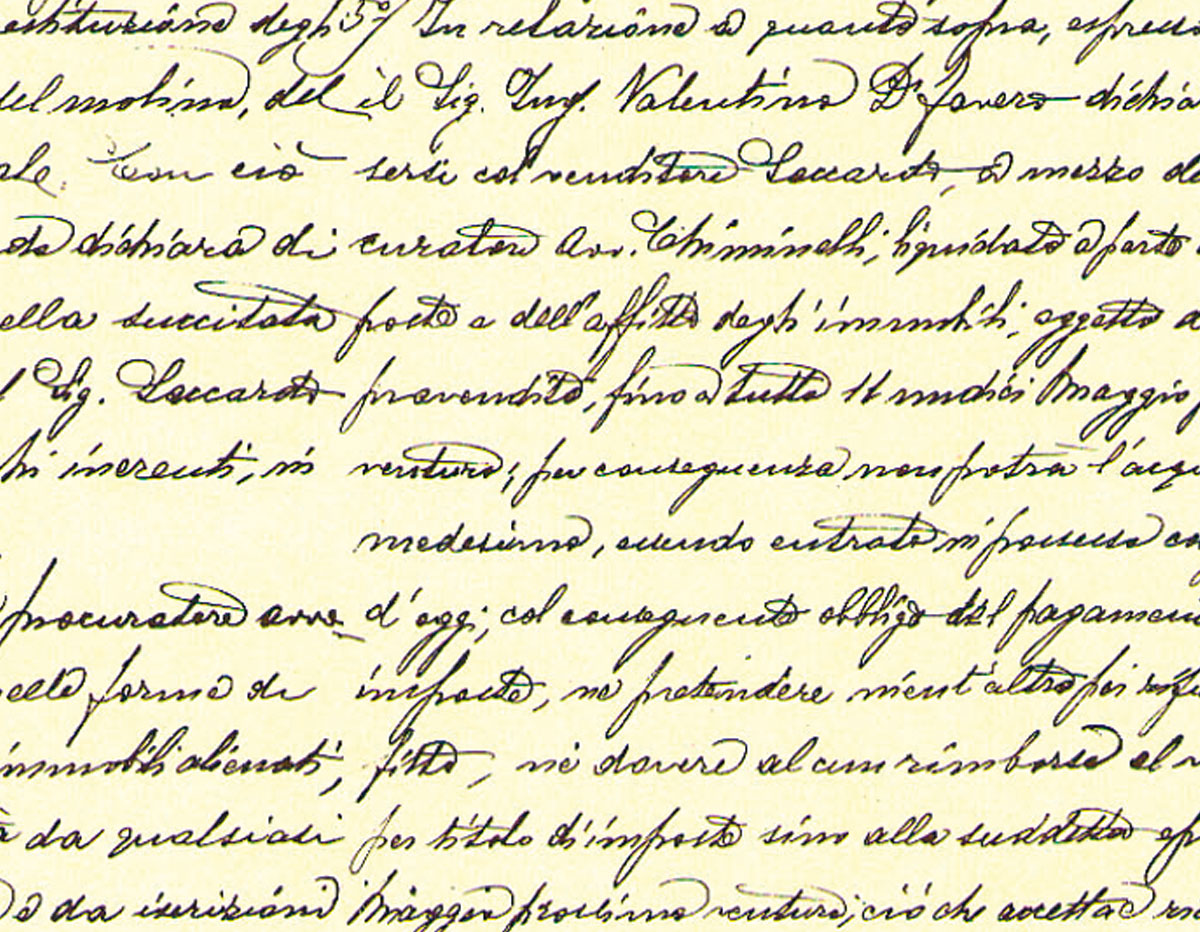 estituzione degli
del molino, del
ale. Con ciò
do dichiara di
ella succitata
l Sig. Saccardo
hi inerenti, ni
procuratore avv.
elle forme di
immobili alienati,
à da qualsiasi
o da iscrizioni
5°/ In relazione a quanto sopra, espresso
il Sig. Ing. Valentino Dr Favero dichia
sersi col venditore Saccardo, a mezzo de
curatore Avv. Chiminelli, liquidato a parte
poste e dell'affitto degli immobili, oggetto
fino a tutto 11 undici Maggio p
venturo; per conseguenza non potrà l'acqu
medesimo, essendo entrato in possesso co
d'oggi, col conseguente obbligo del pagamen
imposte, ne pretendere nient'altro per
fitto, né dovere alcun rimborso al v
per titolo d'imposte sino alla suddetta ep
Maggio prossimo venturo; ciò che accetta e